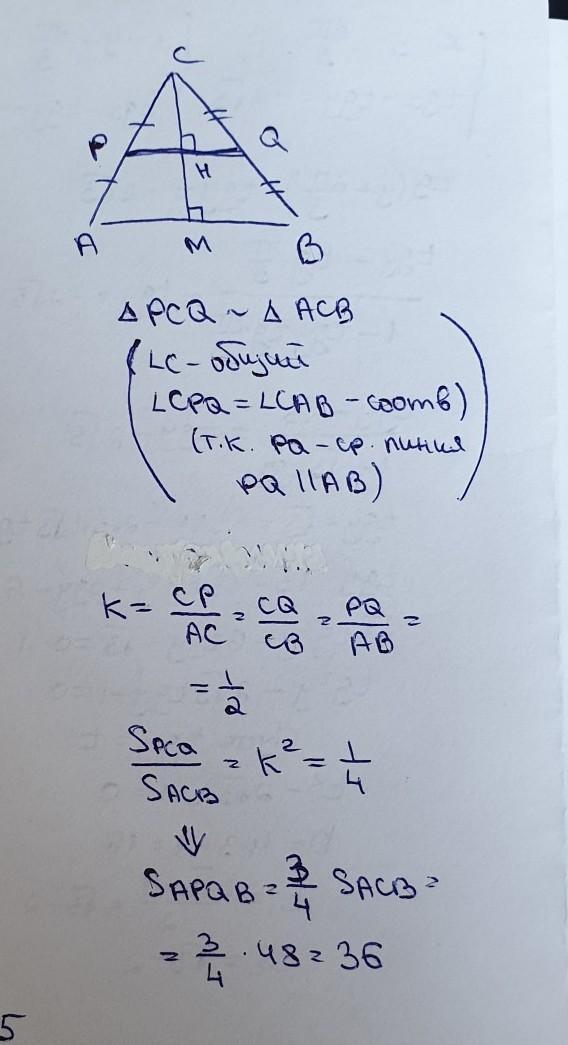 C
P
Q
H
A
M
B
Δ PCQ ~ Δ ACB
(∠C - общий
∠CPQ = ∠CAB - соотв)
(т.к. PQ - ср. линия
PQ || AB)
K = CP/AC = CQ/CB = PQ/AB =
= 1/2
S PCQ / S ACB = K² = 1/4
⇓
S APQB = 3/4 S ACB =
= 3/4 · 48 = 36
5